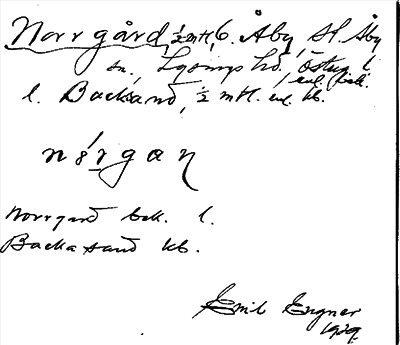 Norrgård, ½ mtl, 6. Åby, St. Åby
sn., Lysings hd. Östug l.
l. Backsand, ½ mtl. enl. kb. enl. bek.
nørgaɳ
Norrgard bek. l.
Backasand kb.
Emil Engner
1929.